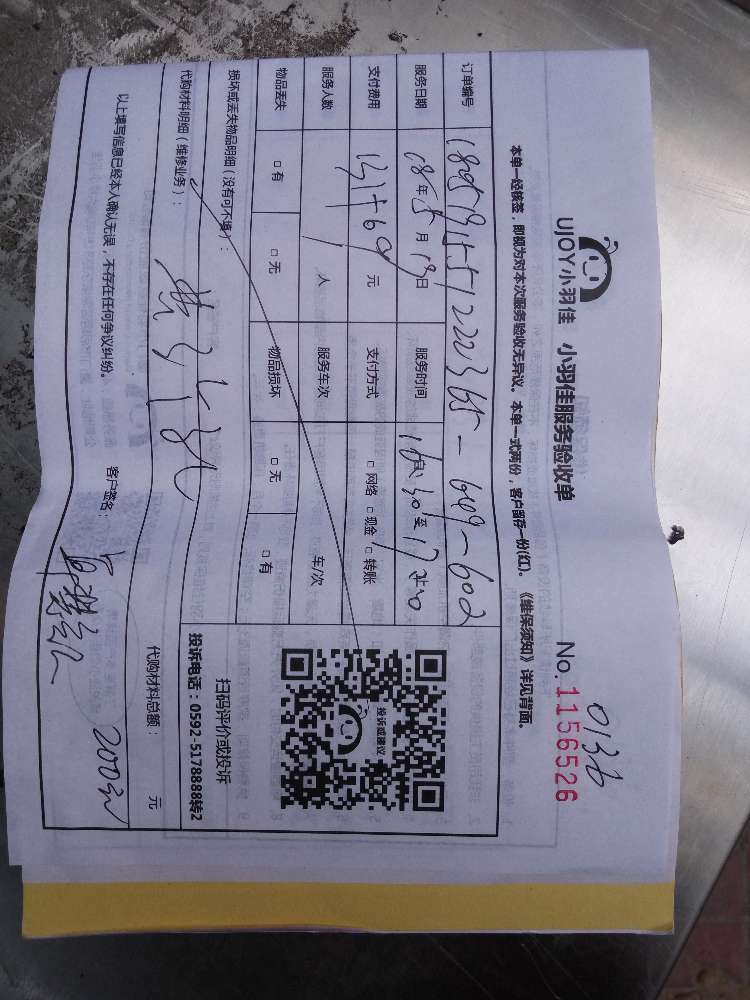 UJOY小羽佳 小羽佳服务验收单
No.1156526
本单一经核签,即视为对本次服务验收无异议。本单一式两份,客户留存一份(红)。《维保须知》详见背面。
订单编号
服务日期 18年5月13日 服务时间 16:30至17:20
支付费用 元 支付方式 □网络 □现金 □转账
服务人数 人 服务车次 车/次
物品丢失 □有 □无 物品损坏 □无 □有
投诉或建议
扫码评价或投诉
投诉电话:0592-5178888转2
损坏或丢失物品明细(没有可不填):
代购材料明细(维修业务):
代购材料总额: 元
200元
以上填写信息已经本人确认无误,不存在任何争议纠纷。 客户签名: